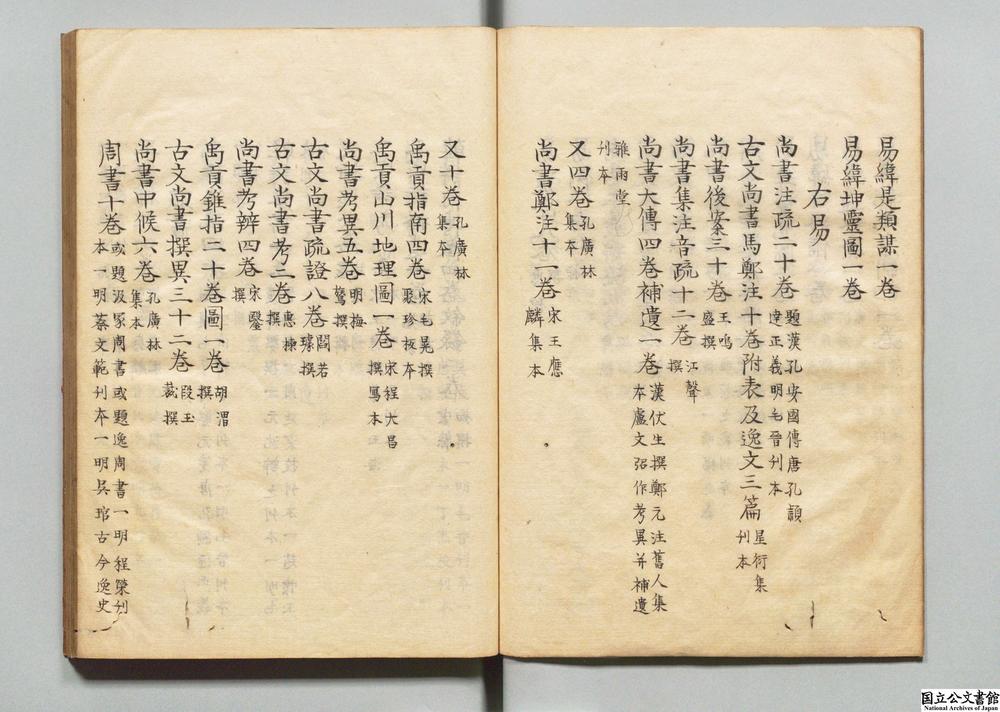 易緯是類謀一卷
易緯坤靈圖一卷
右易
尚書注疏二十卷 題漢孔安國傳唐孔穎達正義明毛晉刊本
古文尚書馬鄭注十卷附表及逸文三篇 星衍集刊本
尚書後案三十卷 王鳴盛撰
尚書集注音疏十二卷 江聲撰
尚書大傳四卷補遺一卷 漢伏生撰鄭元注舊人集本盧文弨作考異并補遺
雅雨堂刊本
又四卷 孔廣林集本
尚書鄭注十一卷 宋王應麟集本
又十卷 孔廣林集本
禹貢指南四卷 宋毛晃撰聚珍板本
禹貢山川地理圖一卷 宋程大昌撰寫本
尚書考異五卷 明梅鷟撰
古文尚書疏證八卷 閻若璩撰
古文尚書考二卷 惠棟撰
尚書考辨四卷 宋鑒撰
禹貢錐指二十卷圖一卷 胡渭撰
古文尚書撰異三十二卷 段玉裁撰
尚書中候六卷 孔廣林集本
周書十卷 或題汲冢周書或題逸周書一明程榮刊本一明蔡文範刊本一明吳琯古今逸史
国立公文書館
National Archives of Japan